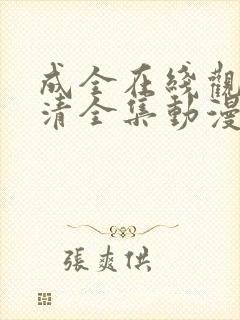 成全在线觀
清全集動漫
張爽供